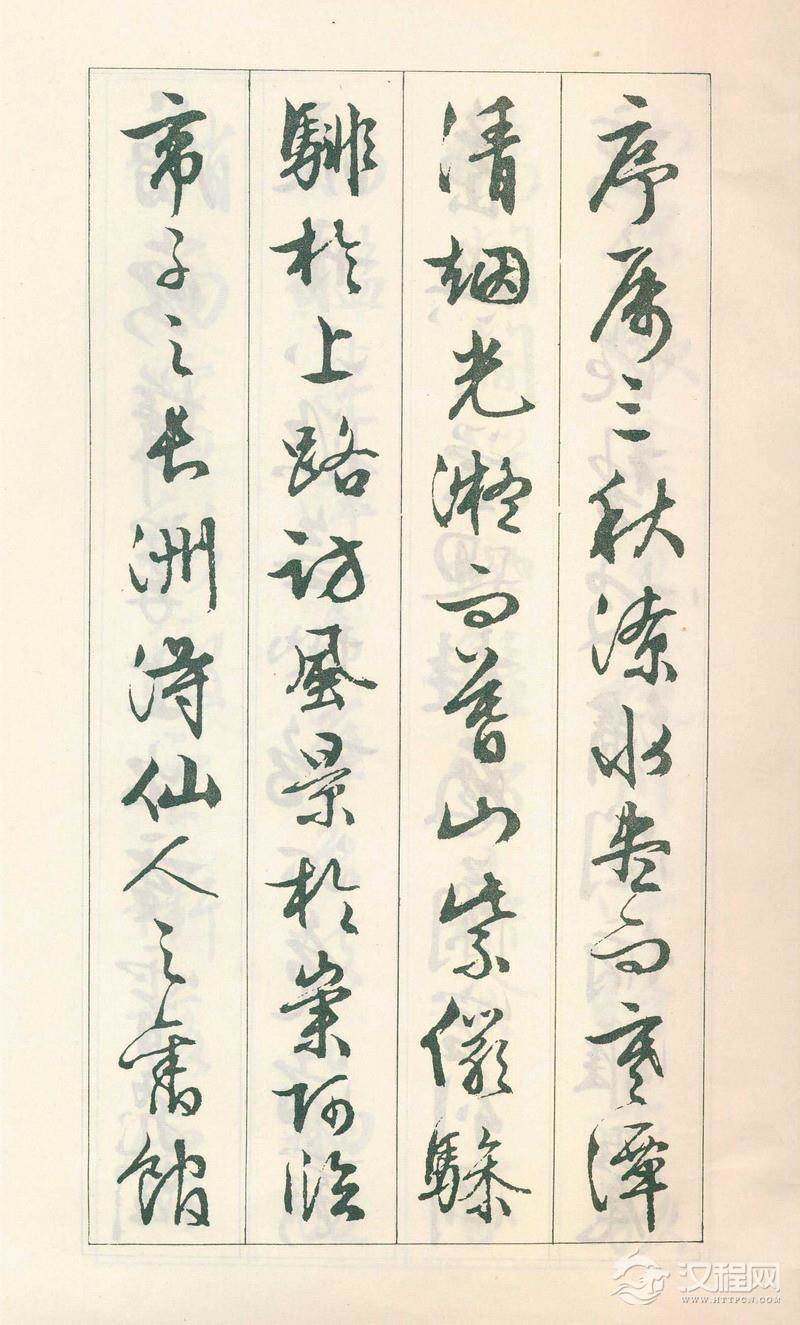 序属三秋潦水盡而寒潭
清烟光凝而暮山紫儼驂
騑於上路訪風景於崇阿臨
帝子之長洲得仙人之舊館
汉程网
WWW.HTTPCN.COM